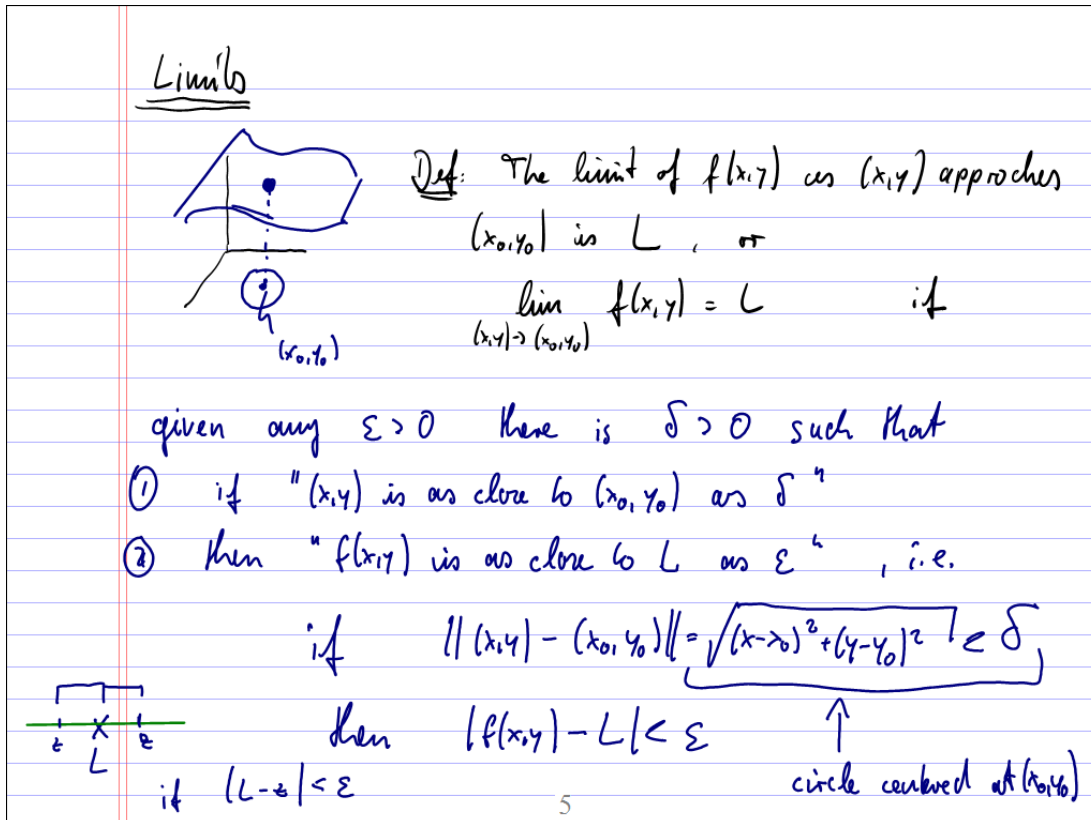 Limits
Def: The limit of f(x,y) as (x,y) approches
(x₀,y₀) is L, or
lim f(x,y) = L if
(x,y)→(x₀,y₀)
(x₀,y₀)
given any ε>0 there is δ>0 such that
① if "(x,y) is as close to (x₀,y₀) as δ"
② then "f(x,y) is as close to L as ε", i.e.
if ||(x,y)-(x₀,y₀)|| = √(x-x₀)²+(y-y₀)² < δ
then |f(x,y)-L| < ε
z z
L
if |L-z| < ε
circle centered at (x₀,y₀)
5